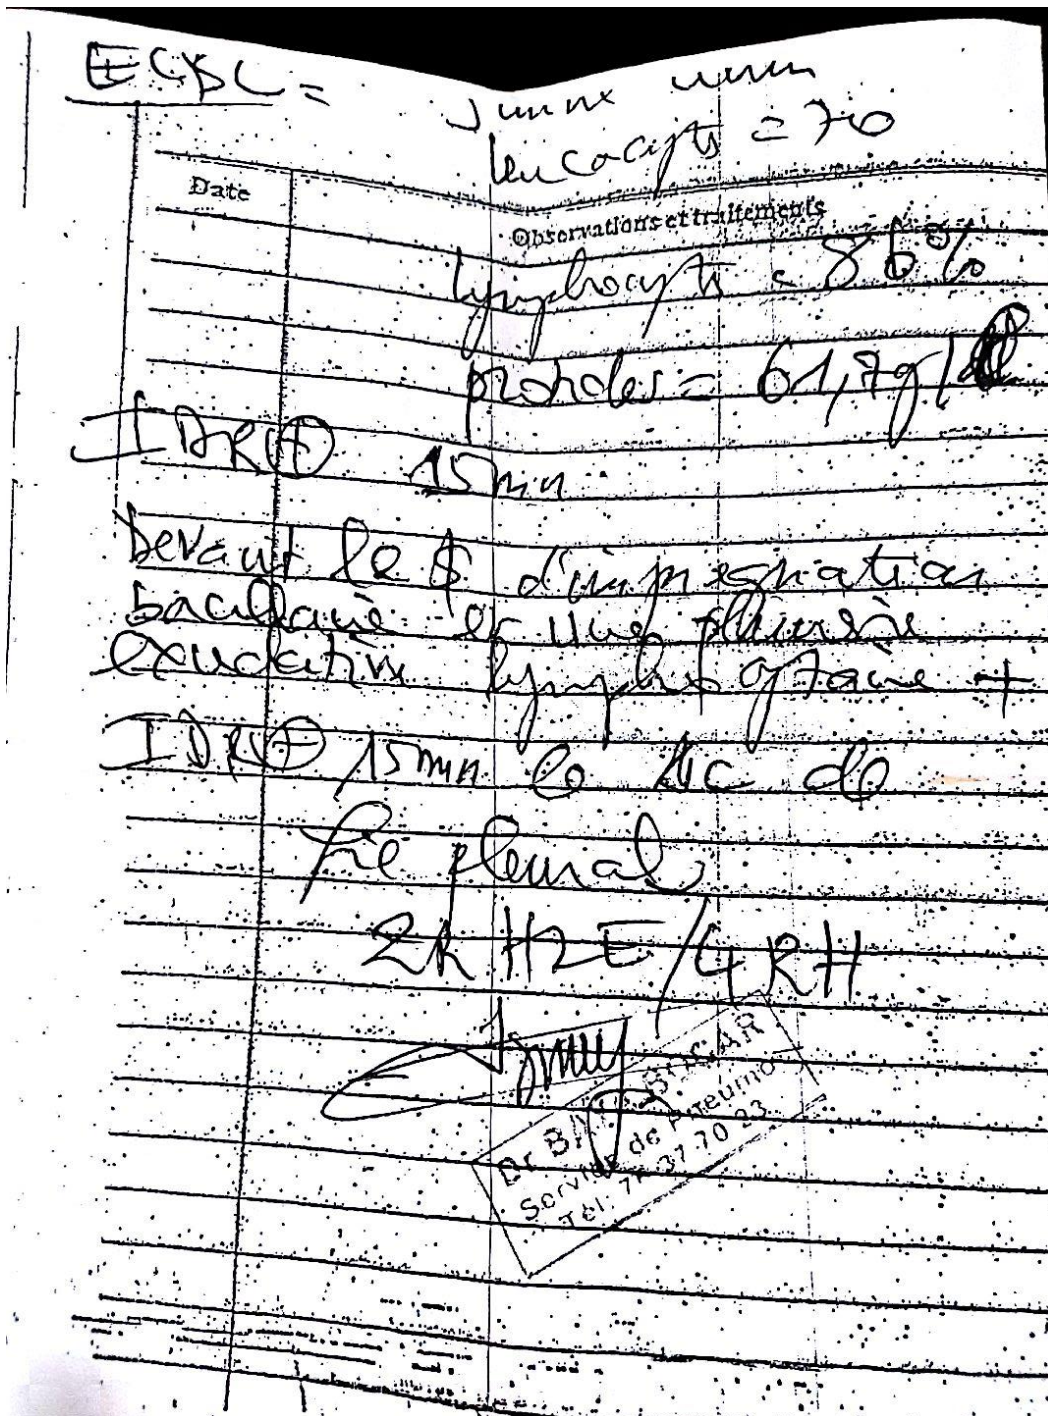 ECBC =
leucocyts = 70
Date
Observations et traitements
lymphocyts = 86%
61,7g/
IDR⊕ 15mm
Devant le $ d'impregnation
bacillaire et une pleuresie
exudative lymphocytaire +
IDR⊕ 15mm le de
pleural
2RHZE/4RH
Dr
Service de Pneumo
Tél: 37 70 23